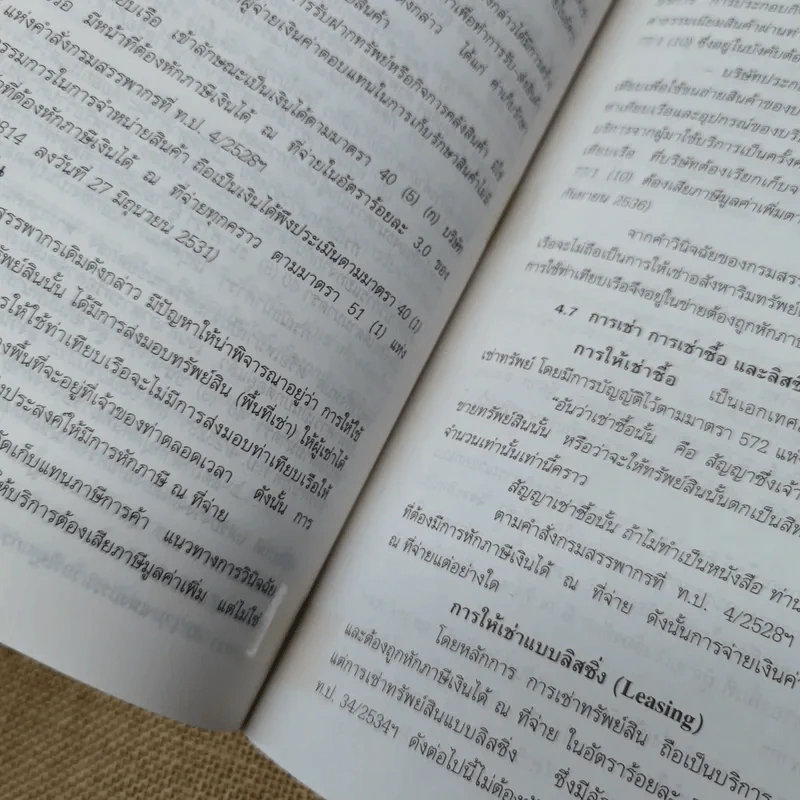 การรับฝากทรัพย์หรือกิจการคลังสินค้า
ผู้จ่ายเงินค่าตอบแทนในการเก็บรักษาสินค้า
เข้าลักษณะเป็นเงินได้ตามมาตรา 40 (5) (ก) บริษัท
มีหน้าที่ต้องหักภาษีเงินได้ ณ ที่จ่ายในอัตราร้อยละ 3.0 ของ
แห่งคำสั่งกรมสรรพากรที่ ท.ป. 4/2528ฯ
กรรมการในการจำหน่ายสินค้า ถือเป็นเงินได้พึงประเมินตามมาตรา 40 (1)
ที่ต้องหักภาษีเงินได้ ณ ที่จ่ายทุกคราว ตามมาตรา 51 (1) แห่ง
814 ลงวันที่ 27 มิถุนายน 2531)
สรรพากรเดิมดังกล่าว มีปัญหาให้น่าพิจารณาอยู่ว่า การให้ใช้
ทรัพย์สินนั้น ได้มีการส่งมอบทรัพย์สิน (พื้นที่เช่า) ให้ผู้เช่าได้
การให้ใช้ท่าเทียบเรือจะไม่มีการส่งมอบท่าเทียบเรือให้
พื้นที่จะอยู่ที่เจ้าของท่าตลอดเวลา ดังนั้น การ
ประสงค์ให้มีการหักภาษี ณ ที่จ่าย
จัดเก็บแทนภาษีการค้า แนวทางการวินิจฉัย
ให้บริการต้องเสียภาษีมูลค่าเพิ่ม แต่ไม่ใช่
การประกอบกิ
ค่าธรรมเนียมสินค้าผ่านท่า
77/1 (10) ซึ่งอยู่ในบังคับต้อ
บริษัทประกอ
เทียบเพื่อใช้ขนถ่ายสินค้าของบ
ท่าเทียบเรือและอุปกรณ์ของบริ
บริการจากผู้มาใช้บริการเป็นครั้ง
เทียบเรือ ที่บริษัทต้องเรียกเก็บจ
77/1 (10) ต้องเสียภาษีมูลค่าเพิ่มต
กันยายน 2536)
จากคำวินิจฉัยของกรมสร
เรือจะไม่ถือเป็นการให้เช่าอสังหาริมทรัพย์
การใช้ท่าเทียบเรือจึงอยู่ในข่ายต้องถูกหักภา
4.7 การเช่า การเช่าซื้อ และลิสซิ
การให้เช่าซื้อ เป็นเอกเทศ
เช่าทรัพย์ โดยมีการบัญญัติไว้ตามมาตรา 572 แห่
"อันว่าเช่าซื้อนั้น คือ สัญญาซึ่งเจ้า
ขายทรัพย์สินนั้น หรือว่าจะให้ทรัพย์สินนั้นตกเป็นสิท
จำนวนเท่านั้นเท่านี้คราว
สัญญาเช่าซื้อนั้น ถ้าไม่ทำเป็นหนังสือ ท่าน
ตามคำสั่งกรมสรรพากรที่ ท.ป. 4/2528ฯ
ที่ต้องมีการหักภาษีเงินได้ ณ ที่จ่าย ดังนั้นการจ่ายเงินค่
ณ ที่จ่ายแต่อย่างใด
การให้เช่าแบบลิสซิ่ง (Leasing)
โดยหลักการ การเช่าทรัพย์สิน ถือเป็นบริการ
และต้องถูกหักภาษีเงินได้ ณ ที่จ่าย ในอัตราร้อยละ
แต่การเช่าทรัพย์สินแบบลิสซิ่ง ซึ่งมีลั
ท.ป. 34/2534ฯ ดังต่อไปนี้ไม่ต้อง